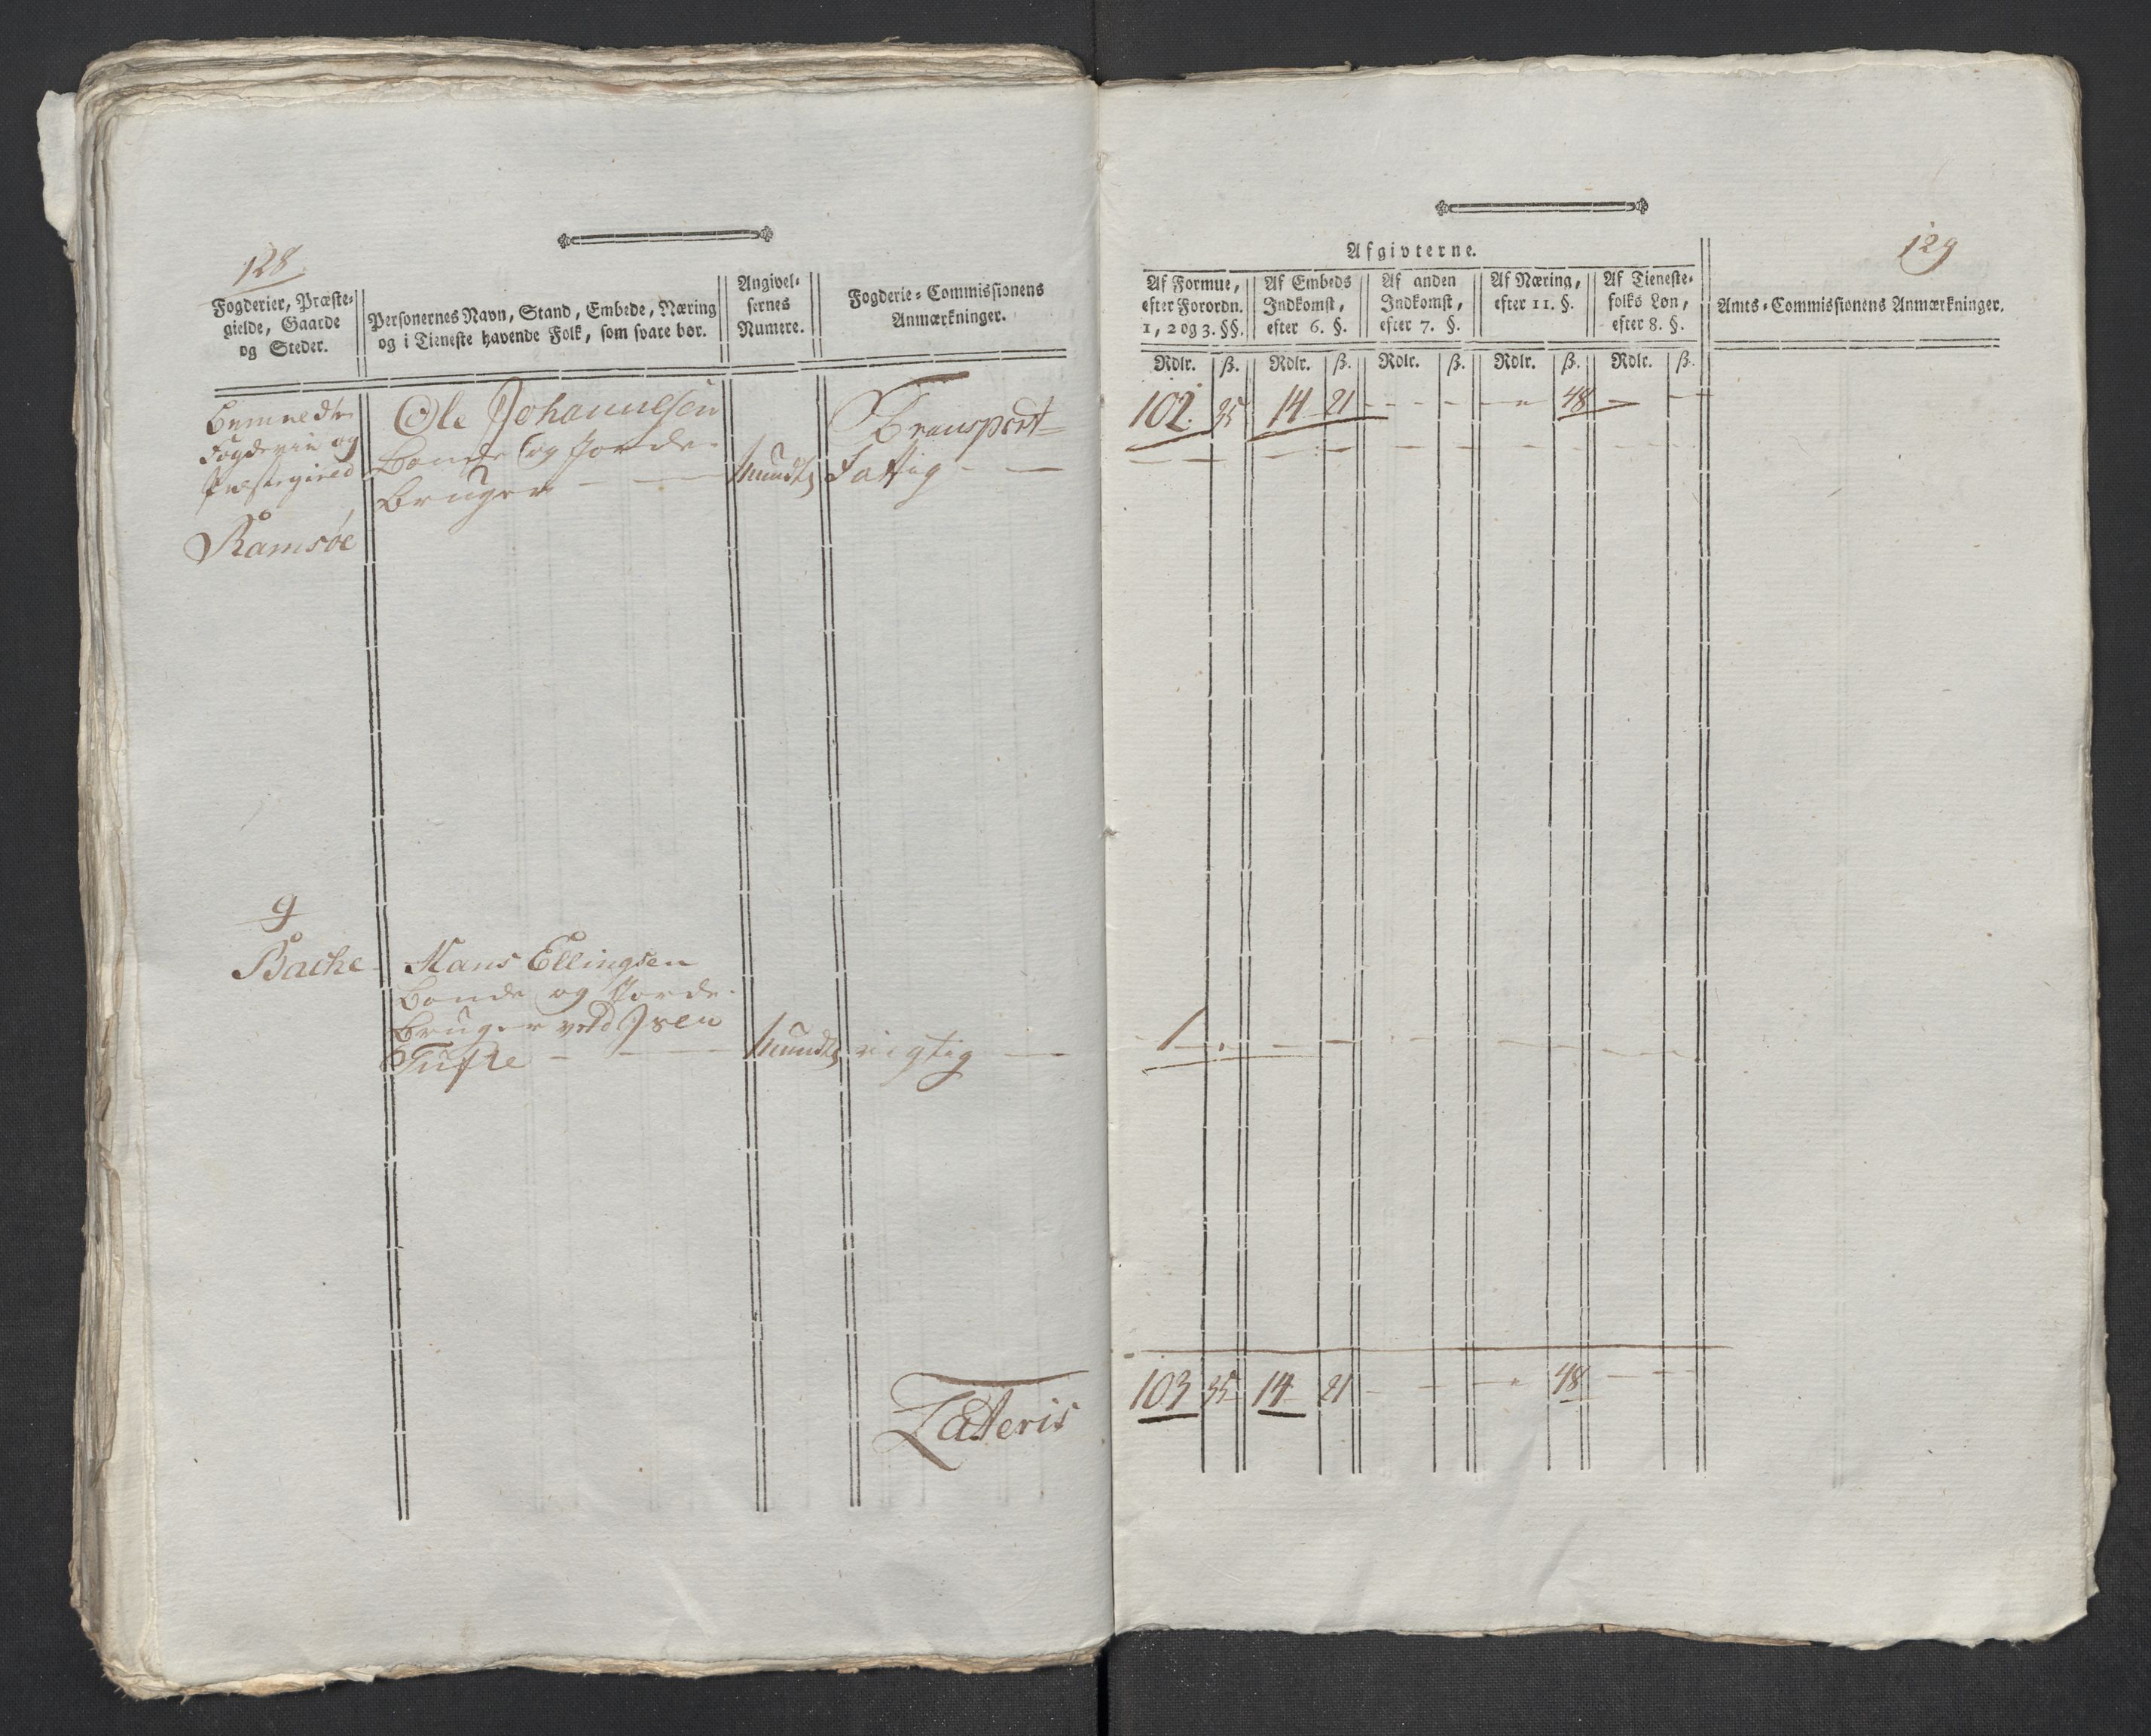 128
Fogderier, Præste-
gielde, Gaarde
og Steder.
Personernes Navn, Stand, Embede, Næring
og i Tieneste havende Folk, som svare bør.
Angivel-
sernes
Numere.
Fogderie-Commissionens
Anmærkninger.
Bemeldte
Fogderie og
Præstegield
Ramsøe
Ole Johannesen
Bonde og Jorde-
bruger - -
mundtl
Transport
Fattig - -
9
Bache
Hans Ellingsen
Bonde og Jorde-
bruger ved Isen
Tufte - - -
mundtl
rigtig -
Lateris
129
Afgivterne.
Af Formue,
efter Forordn.
1, 2 og 3. §§.
Af Embeds
Indkomst,
efter 6. §.
Af anden
Indkomst,
efter 7. §.
Af Næring,
efter 11. §.
Af Tieneste-
folks Løn,
efter 8. §.
Amts-Commissionens Anmærkninger.
Rdlr. ß. Rdlr. ß. Rdlr. ß. Rdlr. ß. Rdlr. ß.
102. 35 14 21 - - - - 48 - -
- 1. - - - - - - - -
103 35 14 21 - - - - 48 - -